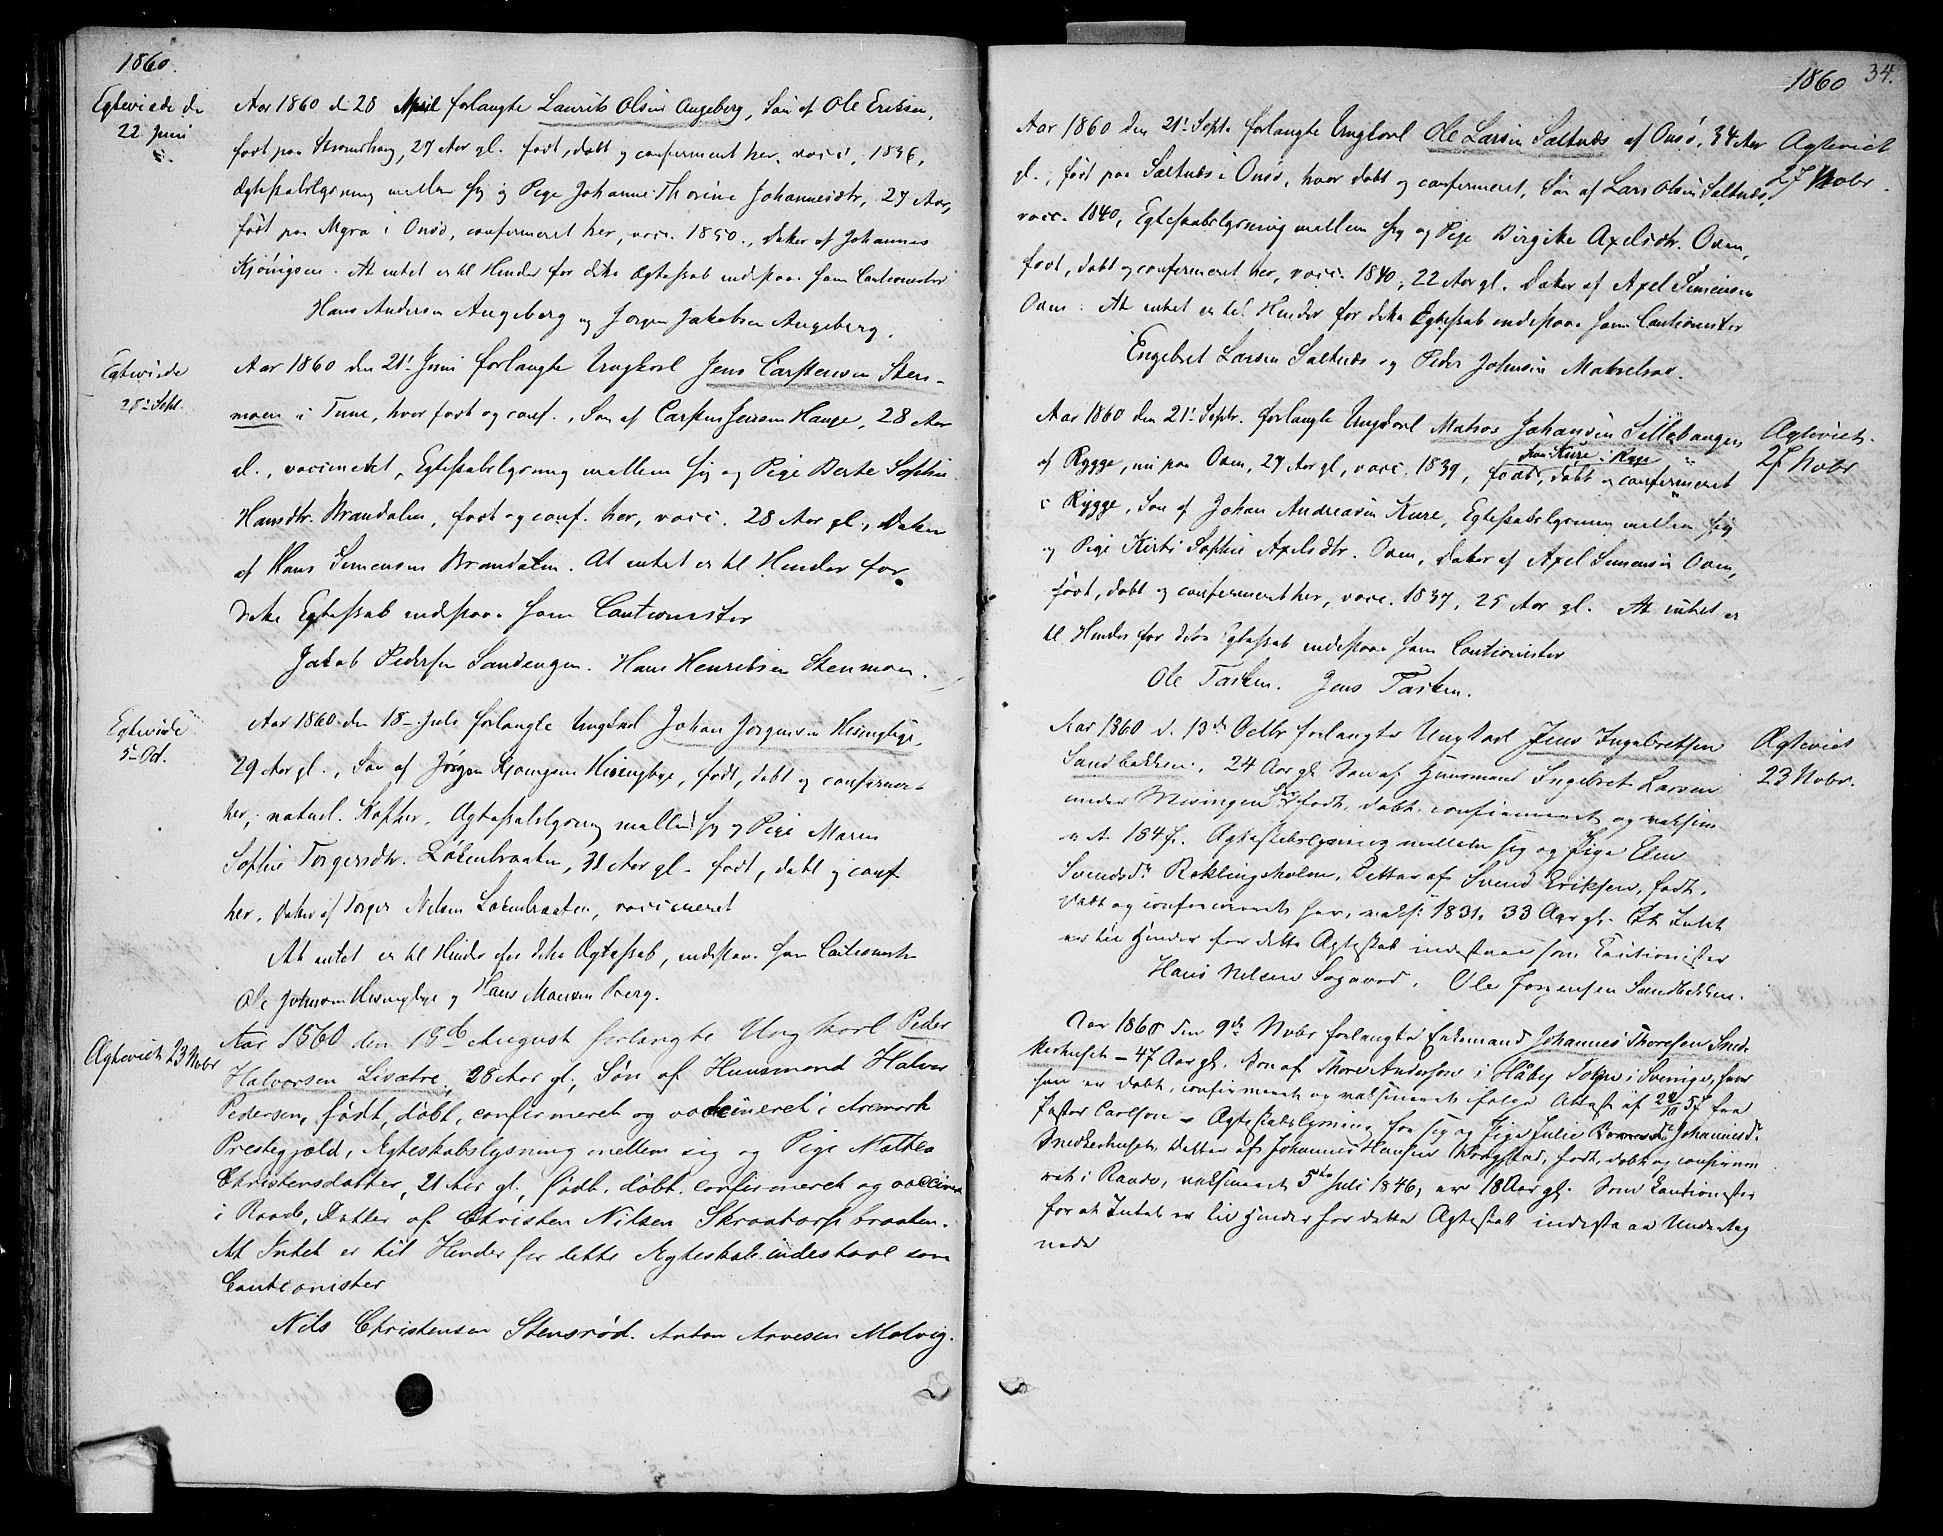 1860.
Egteviede den
22 Juni
Aar 1860 d. 28 April forlangte Laurits Olsen Augeberg, Søn af Ole Eriksen,
født paa Stromshaug, 27 Aar gl. født, døbt og confirmeret her, vacc. 1836,
Ægteskabslysning mellem sig og Pige Johanne Thorine Johannesdtr, 27 Aar,
født paa Myra i Onsø, confirmeret her, vacc. 1850., Datter af Johannes
Kjönigsen. At intet er til Hinder for dette Ægteskab indestaae som Cautionister
Hans Andersen Augeberg og Jørgen Jakobsen Augeberg.
Egteviede
28' Sept.
Aar 1860 den 21' Juni forlangte Ungkarl Jens Carstensen Sten-
moen i Tune, hvor født og conf., Søn af Carsten Jensen Hauge, 28 Aar
gl., vaccineret, Egteskabslysning mellem sig og Pige Berte Sophie
Hansdtr. Brandalen, født og conf. her, vacc. 28 Aar gl., Datter
af Hans Simensen Brandalen. At intet er til Hinder for
dette Egteskab indestaae som Cautionister
Jakob Pedersen Sandengen. Hans Henriksen Stenmoen.
Egteviede
5' Oct.
Aar 1860 den 18 Juli forlangte Ungkarl Johan Jørgensen Hisingbye,
29 Aar gl., Søn af Jørgen Hisingbye, født, døbt og confirmeret
her, naturl. Kopper, Ægteskabslysning mellem sig og Pige Maren
Sophie Torgersdtr. Løkenbraaten, 31 Aar gl. født, døbt og conf.
her. Datter af Torger Nilsen Løkenbraaten, vaccineret
At intet er til Hinder for dette Ægteskab, indestaae som Cautionister
Ole Johnsen Hisingbye og Hans Monsen Berg.
Agteviet 23 Nobr
Aar 1860 den 18de August forlangte Ungkarl Peder
Halvorsen Lisætre, 28 Aar gl, Søn af Huusmand Halvor
Pedersen, født, døbt, confirmeret og vaccineret i Aremark
Prestegjæld, Ægteskabslysning mellem sig og Pige Mathea
Christensdatter, 21 Aar gl, født, døbt, confirmeret og vaccineret
i Raade, Datter af Christen Nilsen Skraatorpbraaten.
At Intet er til Hinder for dette Ægteskab indestaae som
Cautionister
Nils Christensen Stensrød. Anton Arvesen Malvig.
34.
1860
Aar 1860 den 21' Sept. forlangte Ungkarl Ole Larsen Saltnæs af Onsø, 34 Aar
gl., født paa Saltnæs i Onsø, hvor døbt og confirmeret, Søn af Lars Olsen Saltnæs,
vacc. 1840, Egteskabslysning mellem sig og Pige Birgitte Axelsdtr. Oven,
født, døbt og confirmeret her, vacc. 1840, 22 Aar gl. Datter af Axel Simensen
Oven. At intet er til Hinder for dette Egteskab indestaae som Cautionister
Engebret Larsen Saltnæs og Peder Johnsen
Agteviet
27 Nobr.
Aar 1860 den 21' Septr. forlangte Ungkarl Matias Johansen Sillebangen
af Rygge, nu paa Oven, 27 Aar gl, vacc. 1839, født paa Kure i Rygge, døbt og confirmeret
i Rygge, Søn af Johan Andreasen Kure, Egteskabslysning mellem sig
og Pige Kirsti Sophie Axelsdtr. Oven, Datter af Axel Simensen Oven,
født, døbt og confirmeret her, vacc. 1837, 25 Aar gl. At intet er
til Hinder for dette Egteskab indestaae som Cautionister
Ole Tasken. Jens Tasken.
Agteviet.
27 Nobr
Aar 1860 d. 13de Octbr forlangte Ungkarl Jens Ingebretsen
Sandbakken, 24 Aar gl. Søn af Huusmand Ingebret Larsen
under Missingen, født, døbt, confirmeret og vaksine-
ret 1847. Agteskabslysning mellem sig og Pige Elen
Svendsdr. Røklingsholm, Datter af Svend Eriksen, født,
døbt og confirmeret her, vaks. 1831, 33 Aar gl. At Intet
er til Hinder for dette Agteskab indestaae som Cautionister
Hans Nilsen Sogavod, Ole Jørgensen Sandbakken.
Agteviet
23 Nobr.
Aar 1860 den 9de Nobr forlangte Enkemand Johannes Thoresen Sned-
kerhuset - 47 Aar gl. Søn af Thore Andersen i Håby Sogn i Sverige, hvor
han er døbt, confirmeret og vaksineret ifølge Attest af 22/10 57 fra
Pastor Carlson - Agteskabslysning for sig og Pige Julie Johannesdr.
Snedkerhuset, Datter af Johannes Hansen Krogstad, født, døbt og confirme-
ret i Raade, vaksineret 5te Juli 1846, er 18 Aar gl. Som Cautionister
for at Intet er til Hinder for dette Agteskab indestaae Underteg-
nede